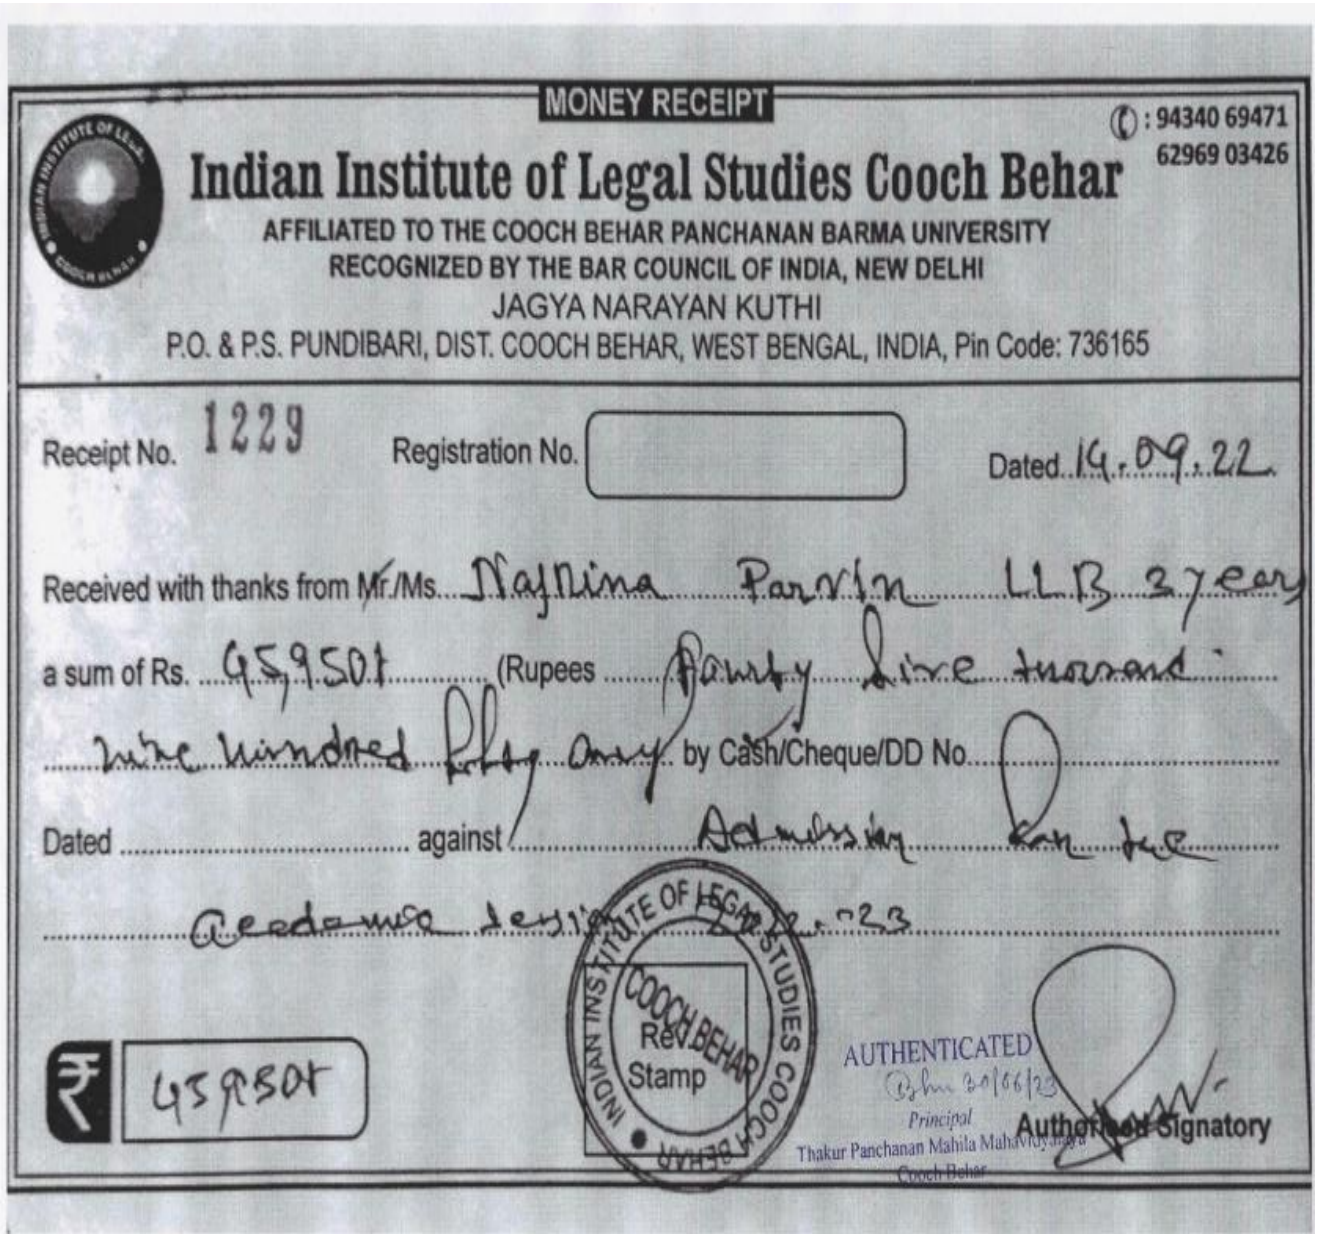 MONEY RECEIPT
: 94340 69471
62969 03426
INDIAN INSTITUTE OF LEGAL
COOCH BEHAR
Indian Institute of Legal Studies Cooch Behar
AFFILIATED TO THE COOCH BEHAR PANCHANAN BARMA UNIVERSITY
RECOGNIZED BY THE BAR COUNCIL OF INDIA, NEW DELHI
JAGYA NARAYAN KUTHI
P.O. & P.S. PUNDIBARI, DIST. COOCH BEHAR, WEST BENGAL, INDIA, Pin Code: 736165
Receipt No. 1229 Registration No. Dated 14.09.22
Received with thanks from Mr./Ms. Najnina Parvin LLB 3 years
a sum of Rs. 45,950/ (Rupees Fourty five thousand
nine hundred fifty only by Cash/Cheque/DD No.
Dated against Admission for the
session 2022-23
INDIAN INSTITUTE OF LEGAL STUDIES COOCH BEHAR
COOCH BEHAR
Rev.
Stamp
₹ 45950/
AUTHENTICATED
30/06/23
Principal
Thakur Panchanan Mahila Mahavidyalaya
Cooch Behar
Authorised Signatory